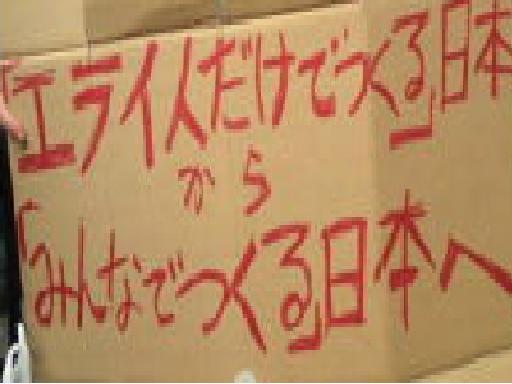 「エライ人だけでつくる」日本
から
「みんなでつくる」日本へ